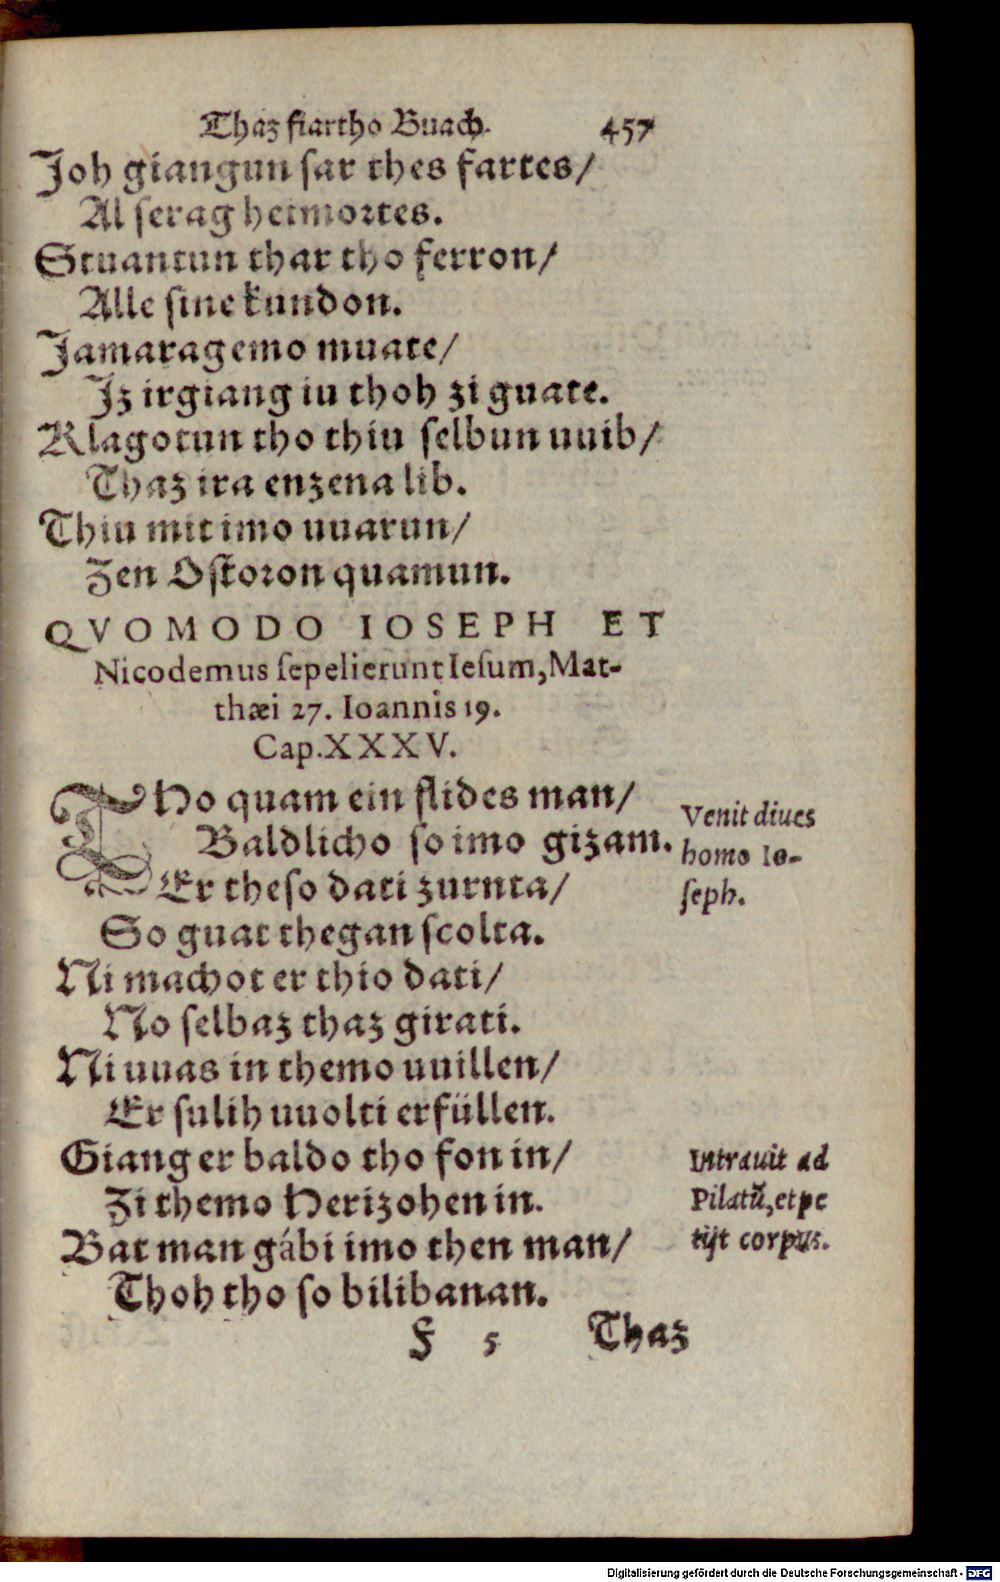 Thaz fiartho Buach. 457
Joh giangun sar thes fartes/
Al serag heimortes.
Stuantun thar tho ferron/
Alle sine kundon.
Jamaragemo muate/
Jz irgiang iu thoh zi guate.
Klagotun tho thiu selbun uuib/
Thaz ira enzena lib.
Thiu mit imo uuarun/
Zen Ostoron quamun.
QVOMODO IOSEPH ET
Nicodemus sepelierunt Iesum, Mat-
thæi 27. Ioannis 19.
Cap. XXXV.
THo quam ein slides man/
Baldlicho so imo gizam.
Er theso dati zurnta/
So guat thegan scolta.
Venit diues
homo Io-
seph.
Ni machot er thio dati/
No selbaz thaz girati.
Ni uuas in themo uuillen/
Er sulih uuolti erfüllen.
Giang er baldo tho fon in/
Zi themo Herizohen in.
Bat man gábi imo then man/
Thoh tho so bilibanan.
Intrauit ad
Pilatū, et pe
tijt corpus.
F 5 Thaz
Digitalisierung gefördert durch die Deutsche Forschungsgemeinschaft - DFG